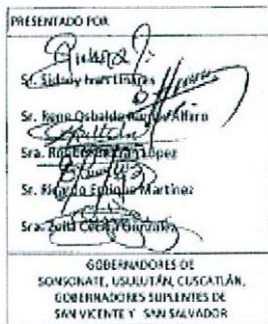 PRESENTADO POR
Sr. Sidney Iván Linares
Sr. Rene Osbaldo Alfaro
Sra. López
Sr. Ricardo Enrique Martínez
Sra. Zoila Cecilia González
GOBERNADORES DE
SONSONATE, USULUTÁN, CUSCATLÁN,
GOBERNADORES SUPLENTES DE
SAN VICENTE Y SAN SALVADOR